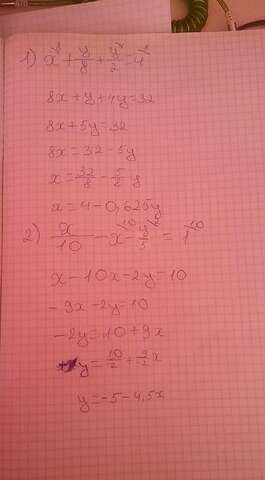 1) x⁸ + y/8 + y⁴/2 = 4⁸
8x + y + 4y = 32
8x + 5y = 32
8x = 32 - 5y
x = 32/8 - 5/8 y
x = 4 - 0,625y
2) x/10 - x¹⁰ - y²/5 = 1¹⁰
x - 10x - 2y = 10
- 9x - 2y = 10
- 2y = 10 + 9x
y = 10/2 + 9/-2 x
y = -5 - 4,5x